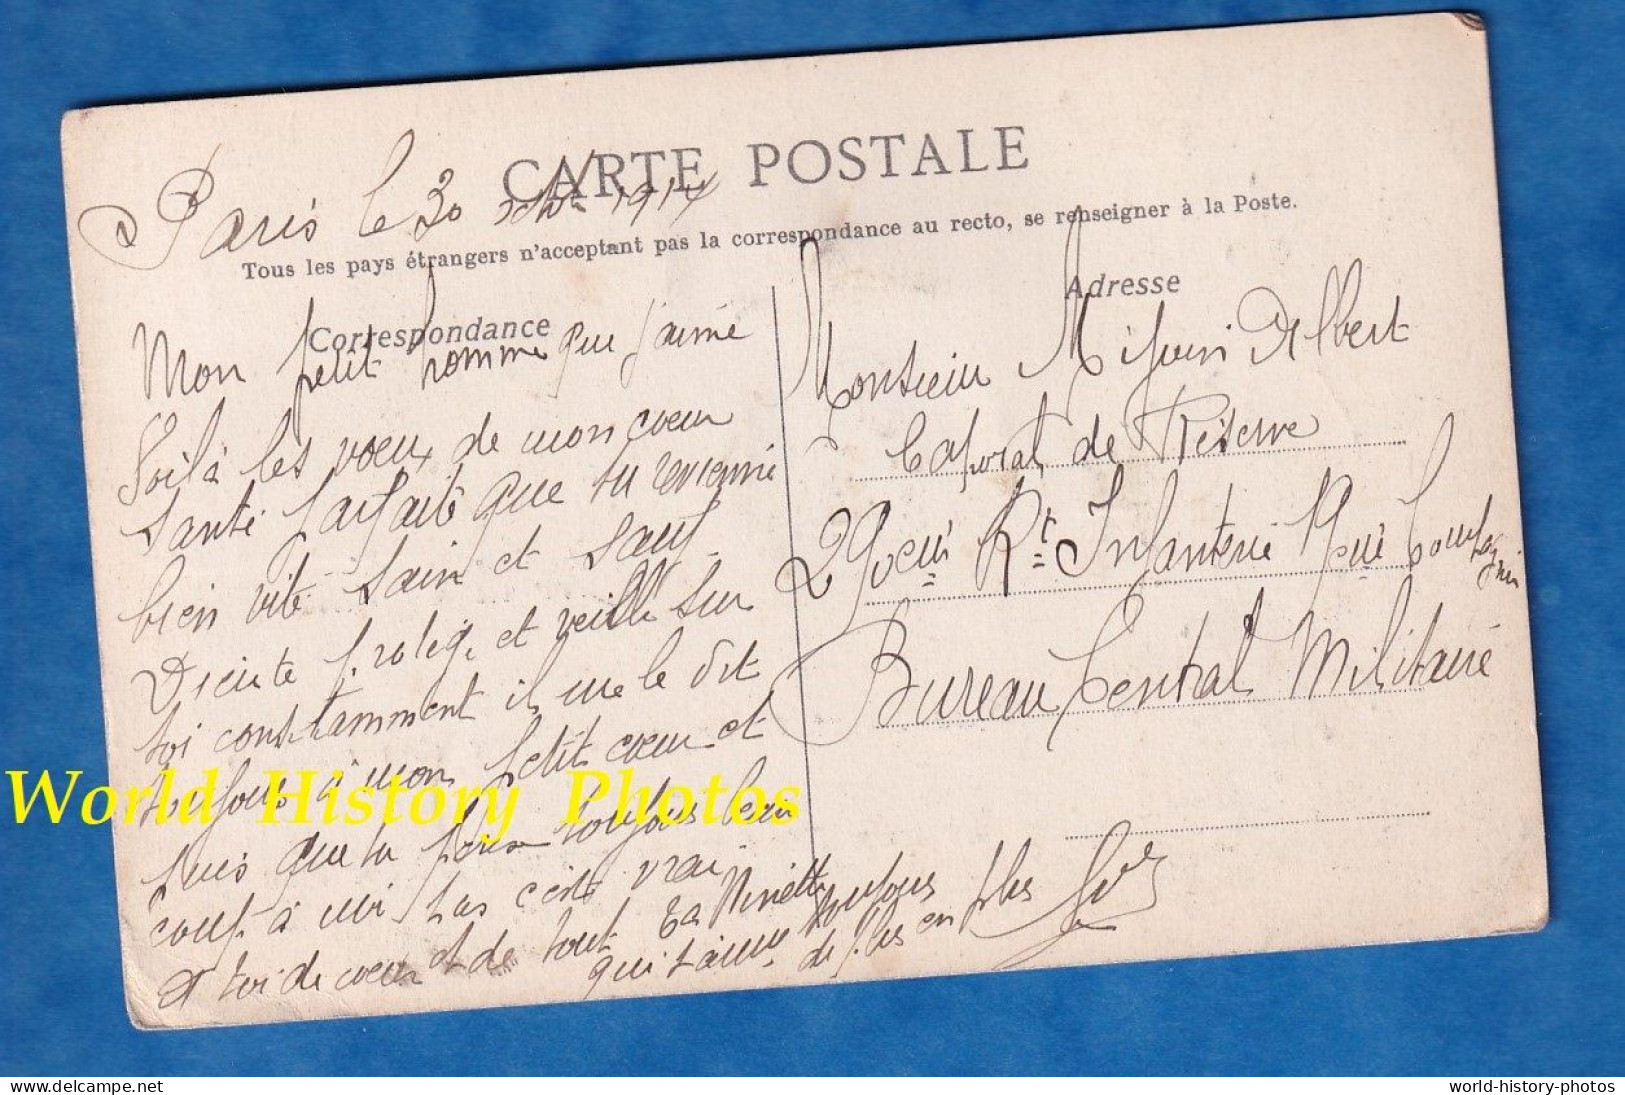 CARTE POSTALE
Paris le 30 1914
Tous les pays étrangers n'acceptant pas la correspondance au recto, se renseigner à la Poste.
Correspondance
Adresse
Mon petit homme que j'aime
Voilà les voeux de mon coeur
santé parfaite que tu revienne
bien vite sain et sauf
protége et veille sur
toi constamment il me le dit
toujours à mon petit coeur et
puis que tu pense toujours beau
coup à moi pas c'est vrai
et toi de coeur et de tout ta Ninette
qui t'aime toujours
de plus en plus
Monsieur Albert
Caporal de Réserve
290eme Rt Infanterie 19eme Compagnie
Bureau Central Militaire
World History Photos
delcampe.net
world-history-photos